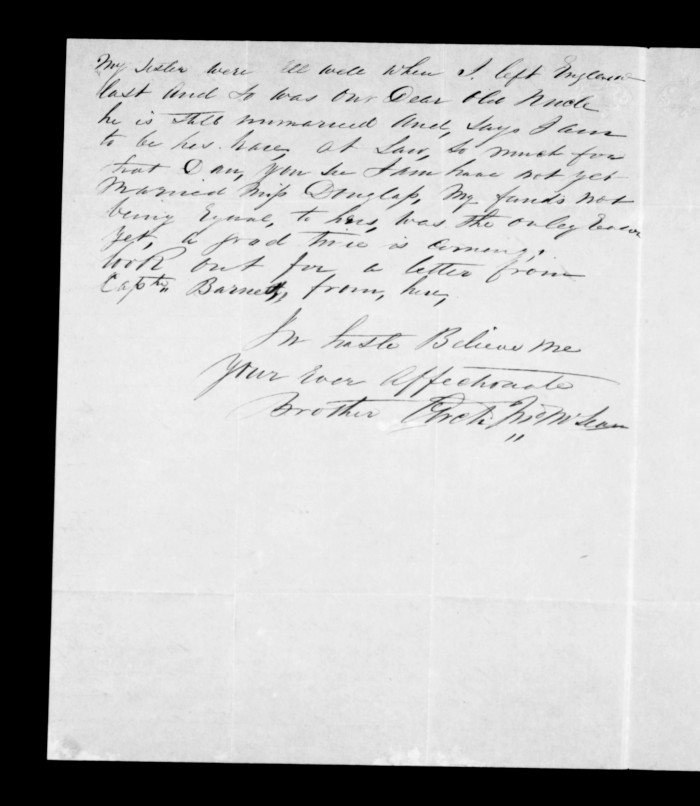 My Sister were all well when I left England
last and so was our Dear old Uncle
he is still unmarried and, says I am
to be his. at Law, so much for
that Dan, you see I am have not yet
Married Miss Douglas, My funds not
being Equal, to hers, was the onley
yet, a good time is coming,
look out for, a letter from
Captn Barnett, from, here,
In haste Believe Me
Your Ever Affectionate
Brother